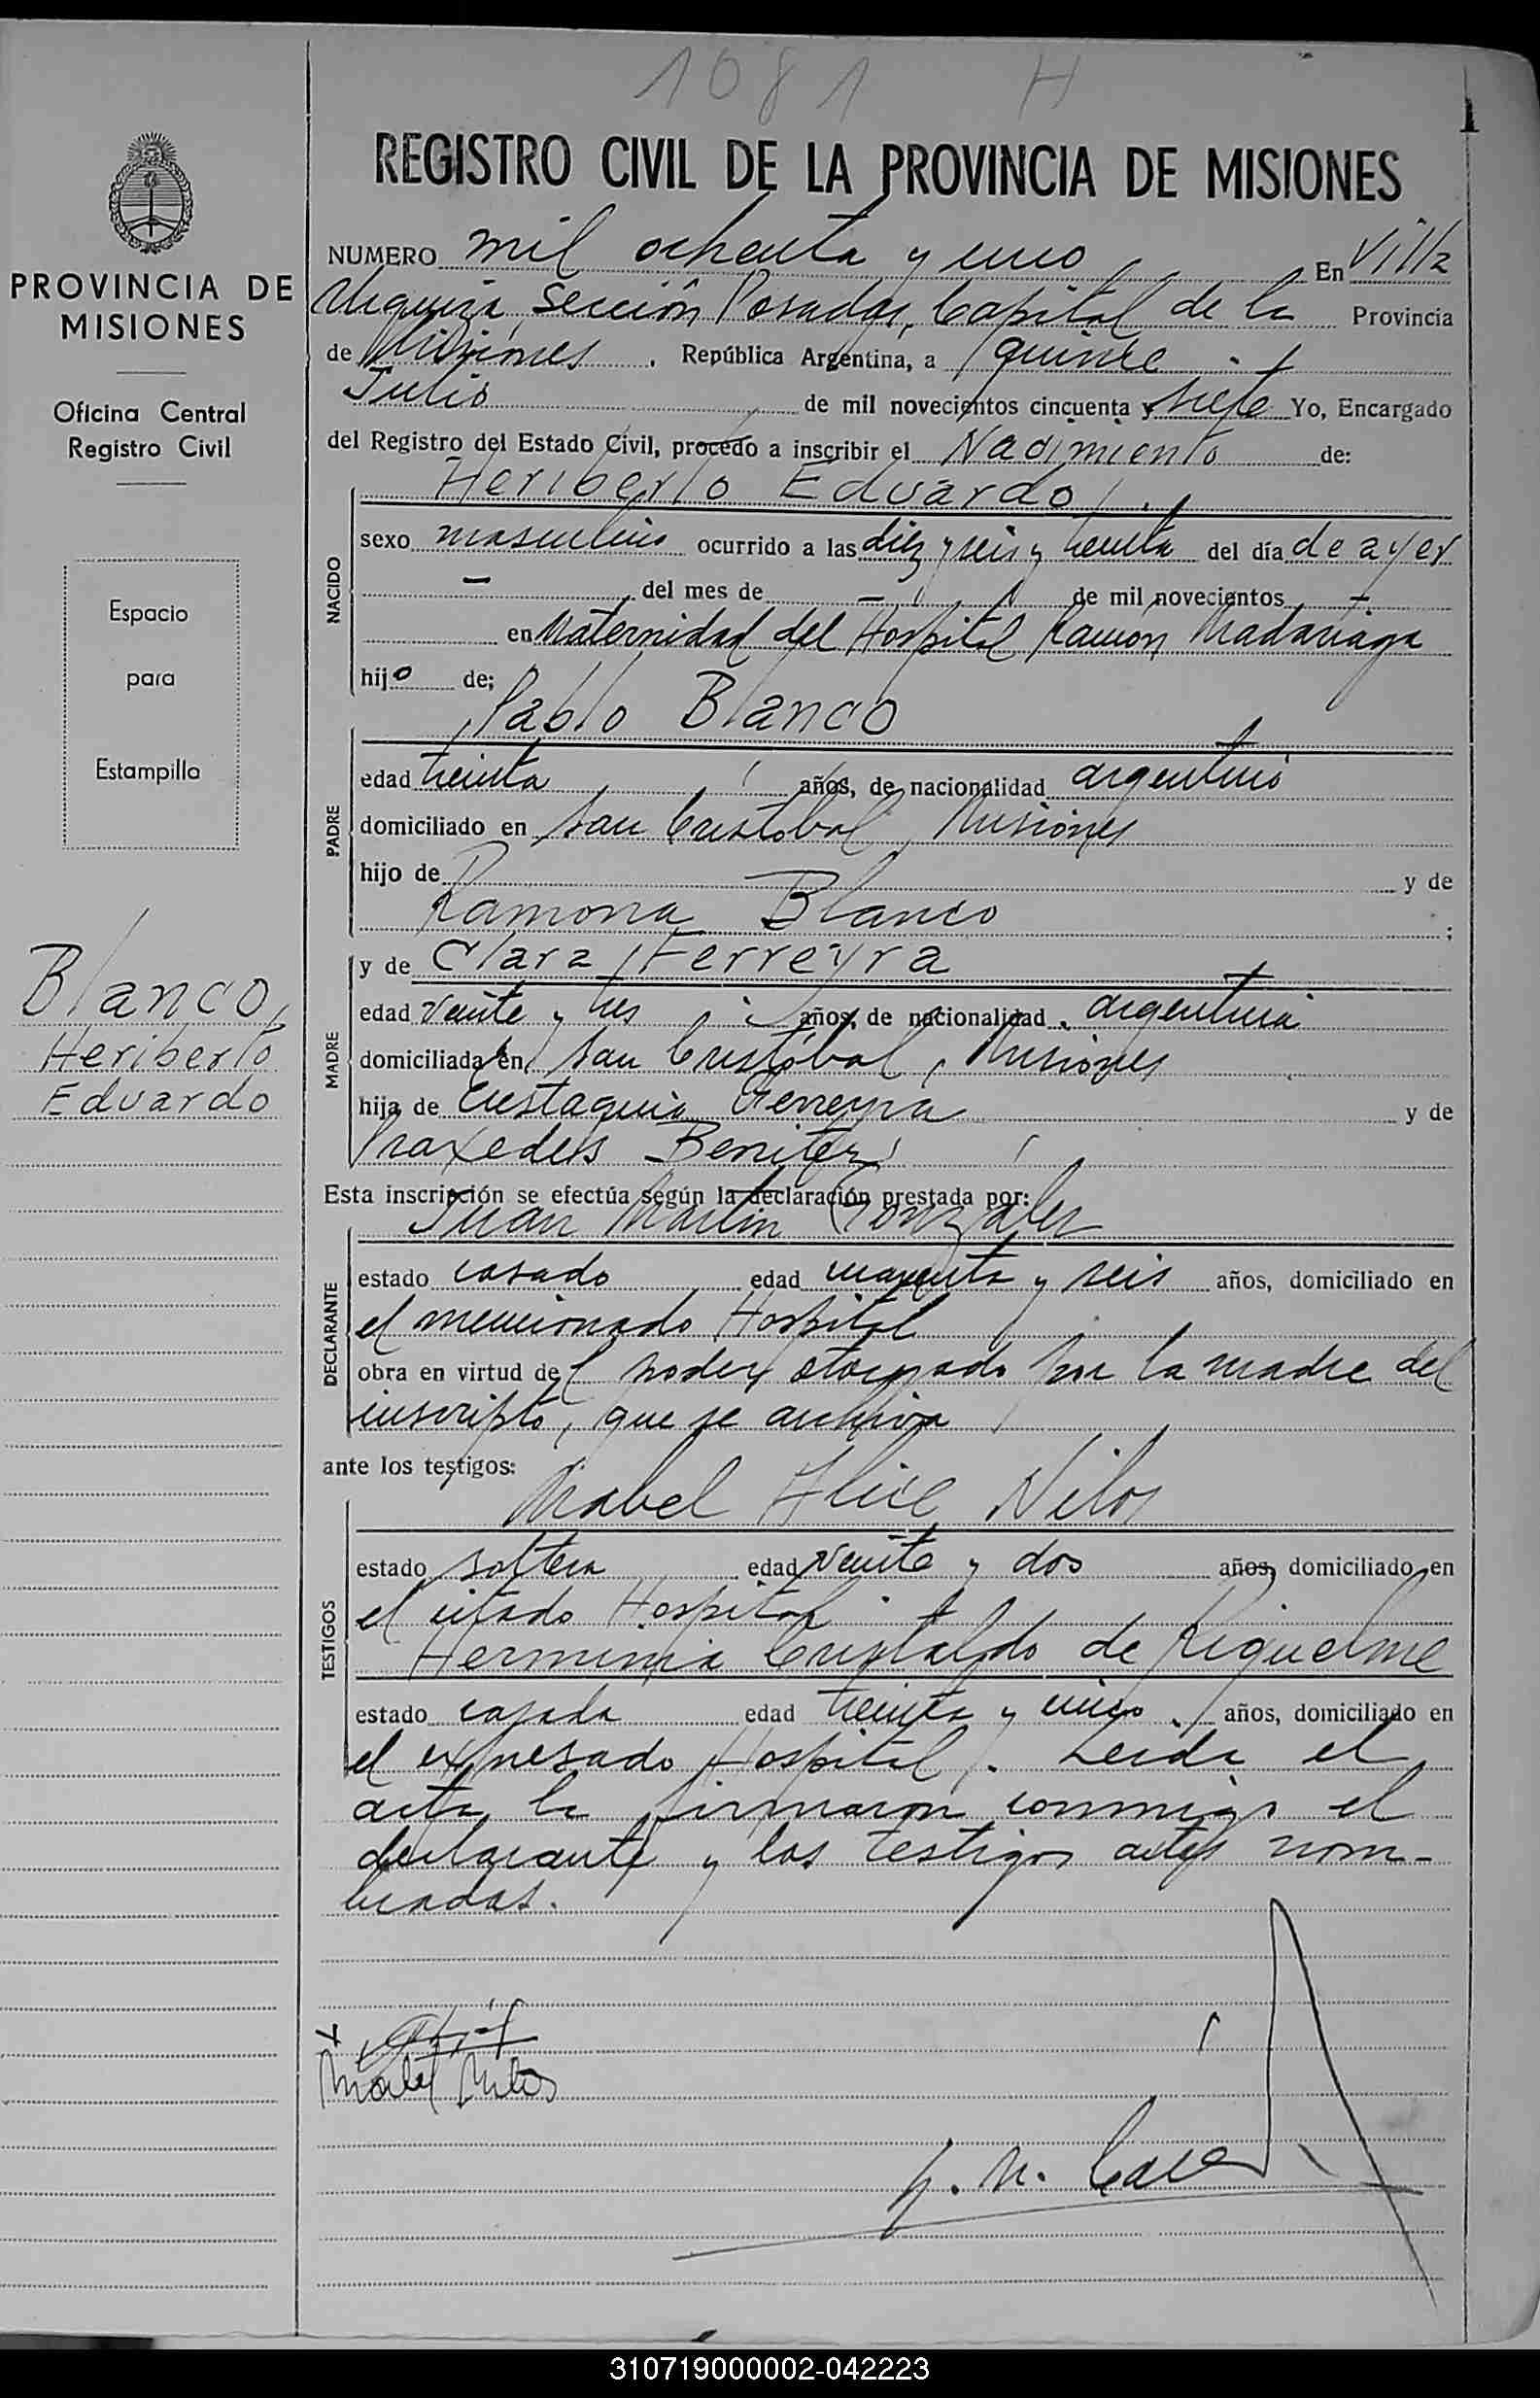 1081 H
1
REGISTRO CIVIL DE LA PROVINCIA DE MISIONES
PROVINCIA DE
MISIONES
Oficina Central
Registro Civil
Espacio
para
Estampilla
Blanco,
Heriberto
Eduardo
NUMERO mil ochenta y uno En Villa
Urquiza, Sección Posadas, Capital de la Provincia
de Misiones, República Argentina, a quince
Julio de mil novecientos cincuenta y siete Yo, Encargado
del Registro del Estado Civil, procedo a inscribir el Nacimiento de:
Heriberto Eduardo
NACIDO
sexo masculino ocurrido a las diez y seis y treinta del día de ayer
— del mes de — de mil novecientos —
en Maternidad del Hospital Ramón Madariaga
hijo de;
Pablo Blanco
PADRE
edad treinta años, de nacionalidad argentino
domiciliado en San Cristobal, Misiones
hijo de y de
Ramona Blanco ;
y de Clara Ferreyra
MADRE
edad veinte y tres años, de nacionalidad argentina
domiciliada en San Cristóbal, Misiones
hija de Eustaquia Ferreyra y de
Praxedes Benitez
Esta inscripción se efectúa según la declaración prestada por:
Juan Martin Gonzalez
DECLARANTE
estado casado edad cuarenta y seis años, domiciliado en
el mencionado Hospital
obra en virtud del poder otorgado por la madre del
inscripto, que se archiva
ante los testigos:
Mabel Alice Nilos
TESTIGOS
estado soltera edad veinte y dos años, domiciliado en
el citado Hospital
Herminia Cristaldo de Riquelme
estado casada edad treinta y cinco años, domiciliado en
el expresado Hospital. Leida el
acta, la firmaron conmigo el
declarante y los testigos antes nom-
brados.
Mabel Nilos
310719000002-042223